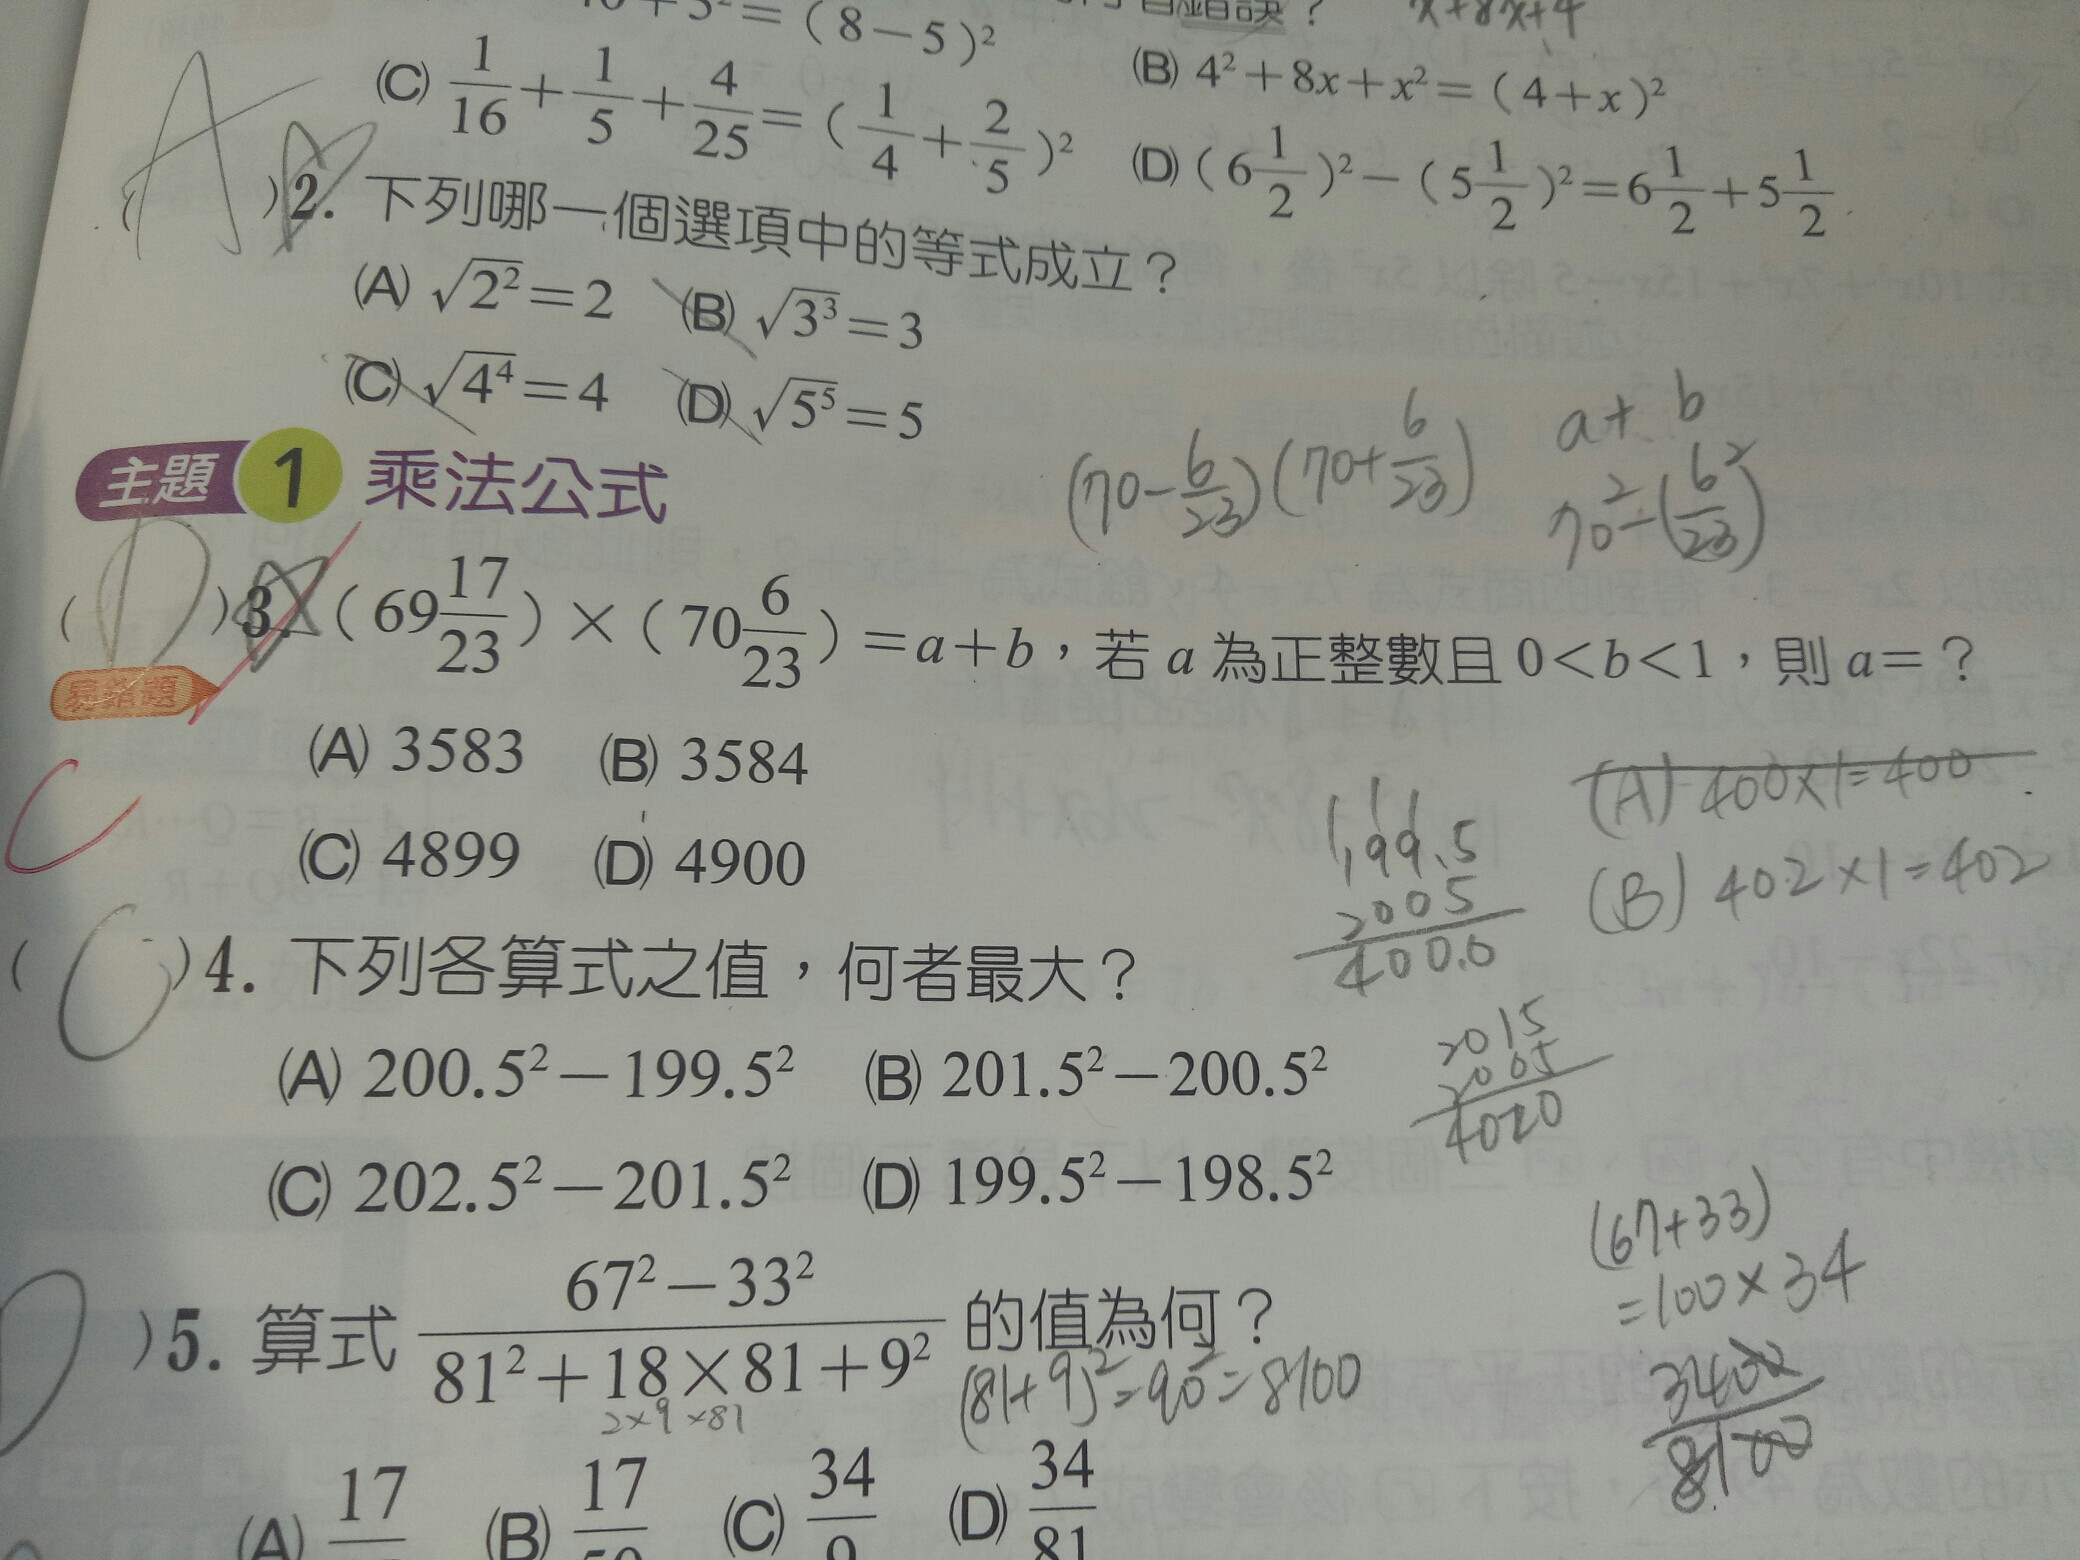 =(8-5)²
x+8x+4
(C) 1/16+1/5+4/25=(1/4+2/5)²
(B) 4²+8x+x²=(4+x)²
(D) (6 1/2)²-(5 1/2)²=6 1/2+5 1/2
A
( )2. 下列哪一個選項中的等式成立?
(A) √2²=2 (B) √3³=3
(C) √4⁴=4 (D) √5⁵=5
主題 1 乘法公式
(70-6/23)(70+6/23)
a+b
70²-(6/23)²
( D )3. (69 17/23)×(70 6/23)=a+b,若 a 為正整數且 0<b<1,則 a=?
易錯題
C
(A) 3583 (B) 3584
(C) 4899 (D) 4900
199.5
2005
400.0
(A) 400×1=400
(B) 402×1=402
( C )4. 下列各算式之值,何者最大?
(A) 200.5²-199.5² (B) 201.5²-200.5²
(C) 202.5²-201.5² (D) 199.5²-198.5²
2015
2005
4020
D )5. 算式 67²-33²/81²+18×81+9² 的值為何?
2×9×81
(81+9)²=90²=8100
(67+33)
=100×34
3400
8100
(A) 17 (B) 17 (C) 34/9 (D) 34/81